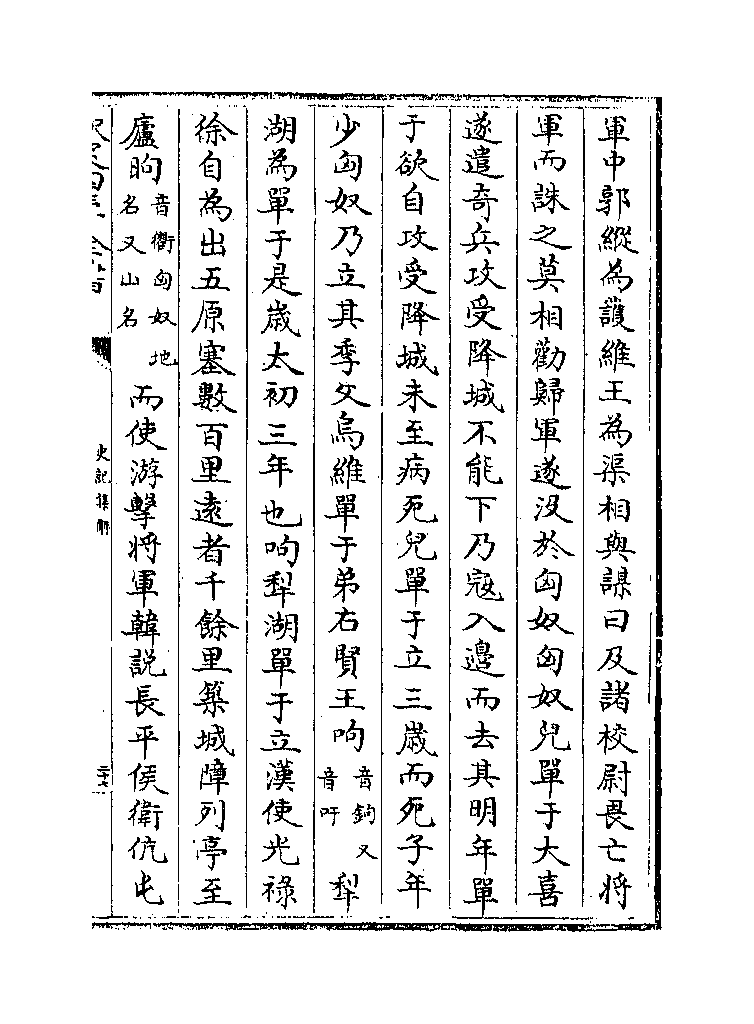 軍中郭縱為護維王為渠相與謀曰及諸校尉畏亡將
軍而誅之莫相勸歸軍遂沒於匈奴匈奴兒單于大喜
遂遣奇兵攻受降城不能下乃寇入邊而去其明年單
于欲自攻受降城未至病死兒單于立三歲而死子年
少匈奴乃立其季父烏維單于弟右賢王呴音鉤又音吁犁
湖為單于是歲太初三年也呴犁湖單于立漢使光祿
徐自為出五原塞數百里遠者千餘里築城障列亭至
廬朐音衢匈奴地名又山名而使游擊將軍韓說長平侯衛伉屯
史記集解